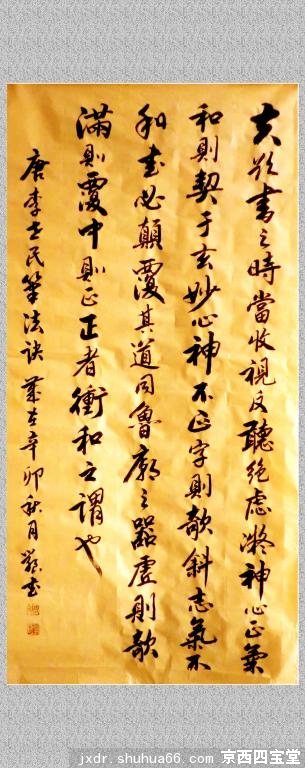 夫欲書之時當收視反聽絕虑凝神心正氣
和則契于玄妙心神不正字則欹斜志氣不
和書必顛覆其道同魯廟之器虛則欹
滿則覆中則正正者衝和之謂也
唐李世民筆法訣歲在辛卯秋月書
jxdr.shuhua66.com 京西四宝堂